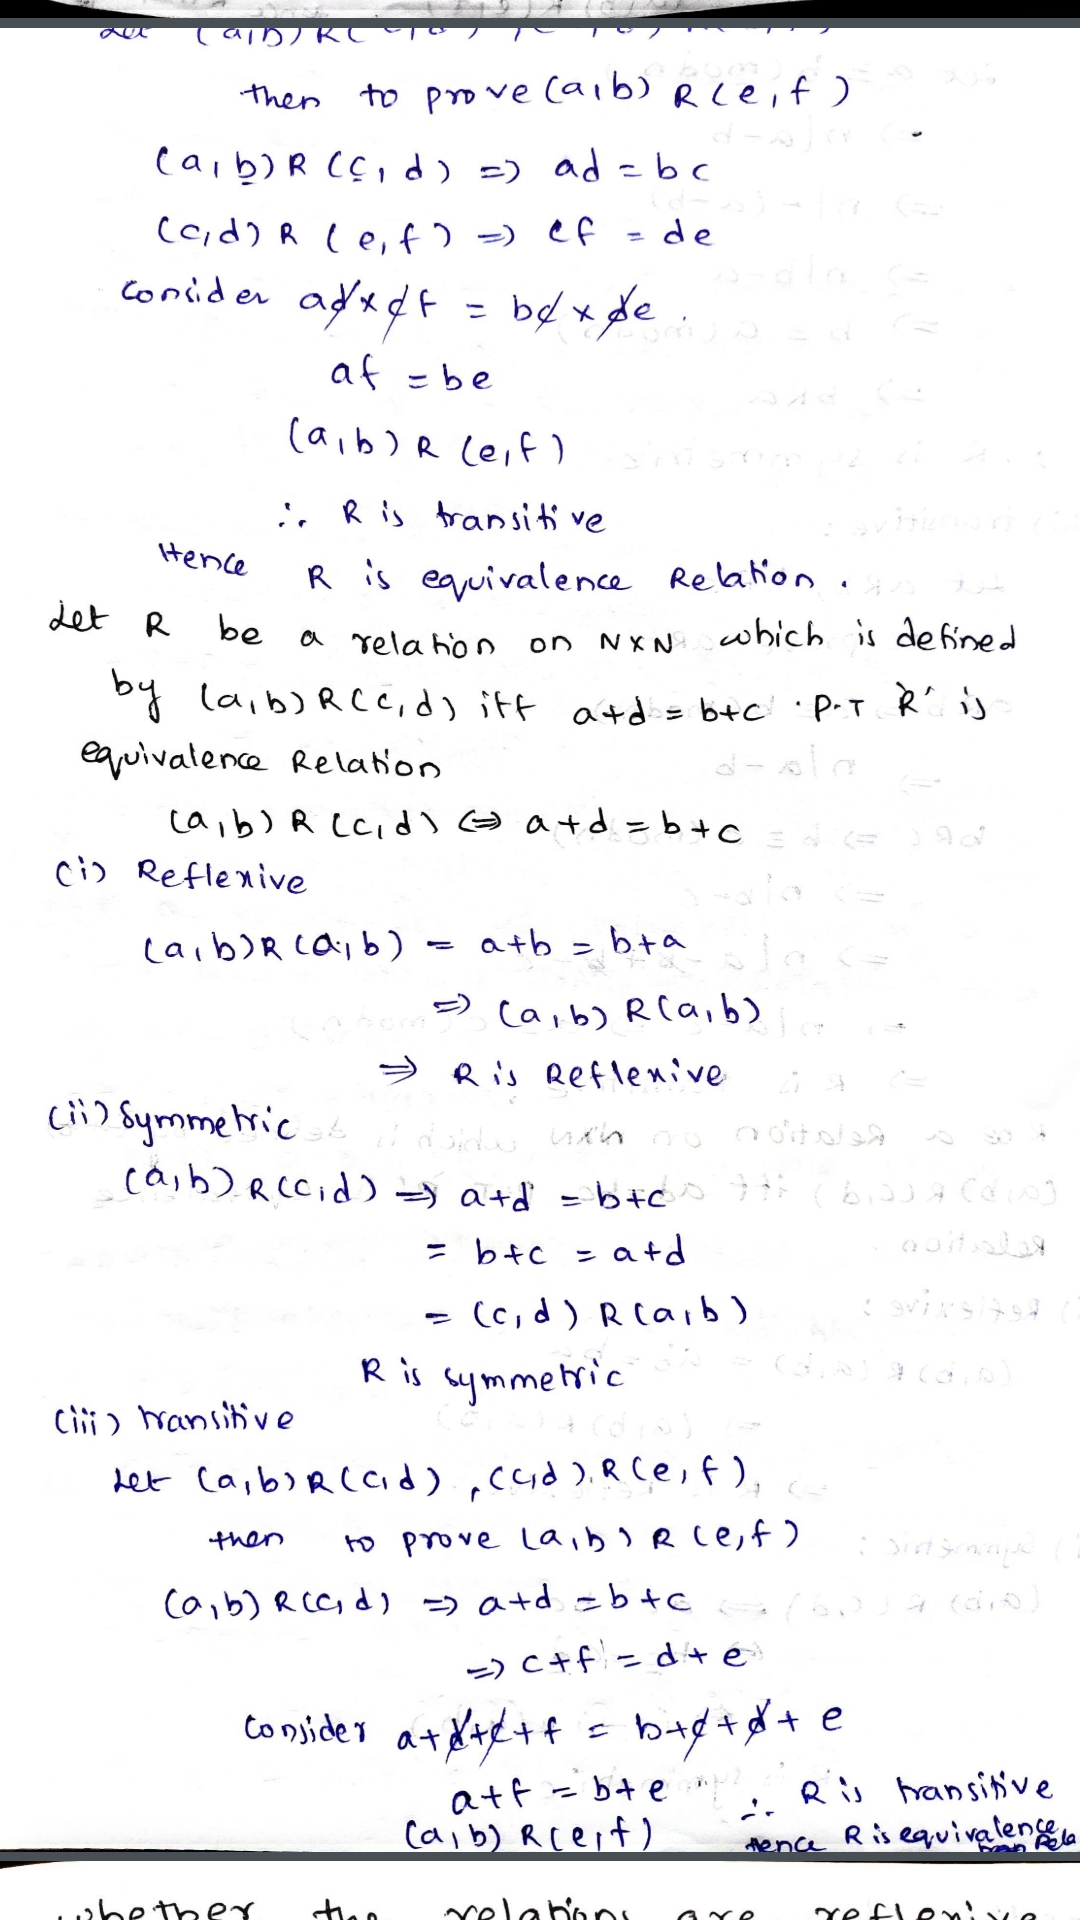 then to prove (a,b) R (e,f)
(a,b) R (c,d) => ad = bc
(c,d) R (e,f) => cf = de
Consider ad x cf = bc x de.
af = be
(a,b) R (e,f)
∴ R is transitive
Hence R is equivalence Relation.
Let R be a relation on N×N which is defined
by (a,b) R (c,d) iff a+d = b+c . P.T 'R' is
equivalence Relation
(a,b) R (c,d) <=> a+d = b+c
(i) Reflexive
(a,b) R (a,b) = a+b = b+a
=> (a,b) R (a,b)
=> R is Reflexive
(ii) Symmetric
(a,b) R (c,d) => a+d = b+c
= b+c = a+d
= (c,d) R (a,b)
R is symmetric
(iii) transitive
Let (a,b) R (c,d) , (c,d) R (e,f)
then to prove (a,b) R (e,f)
(a,b) R (c,d) => a+d = b+c
=> c+f = d+e
Consider a+d+c+f = b+c+d+e
a+f = b+e ∴ R is transitive
(a,b) R (e,f) Hence R is equivalence
Rela
whether the relations are reflexive